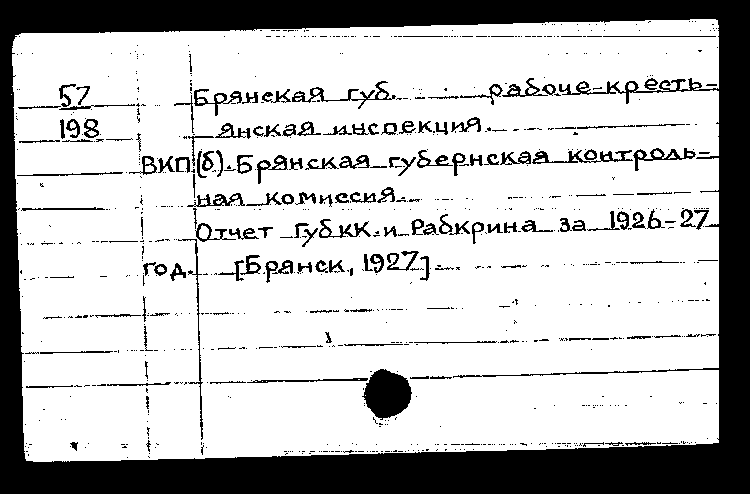 57 Брянская губ. рабоче-кресть-
198 янская инспекция.
ВКП(б). Брянская губернская контроль-
ная комиссия.
Отчет ГубКК и Рабкрина за 1926-27
год. [Брянск, 1927].